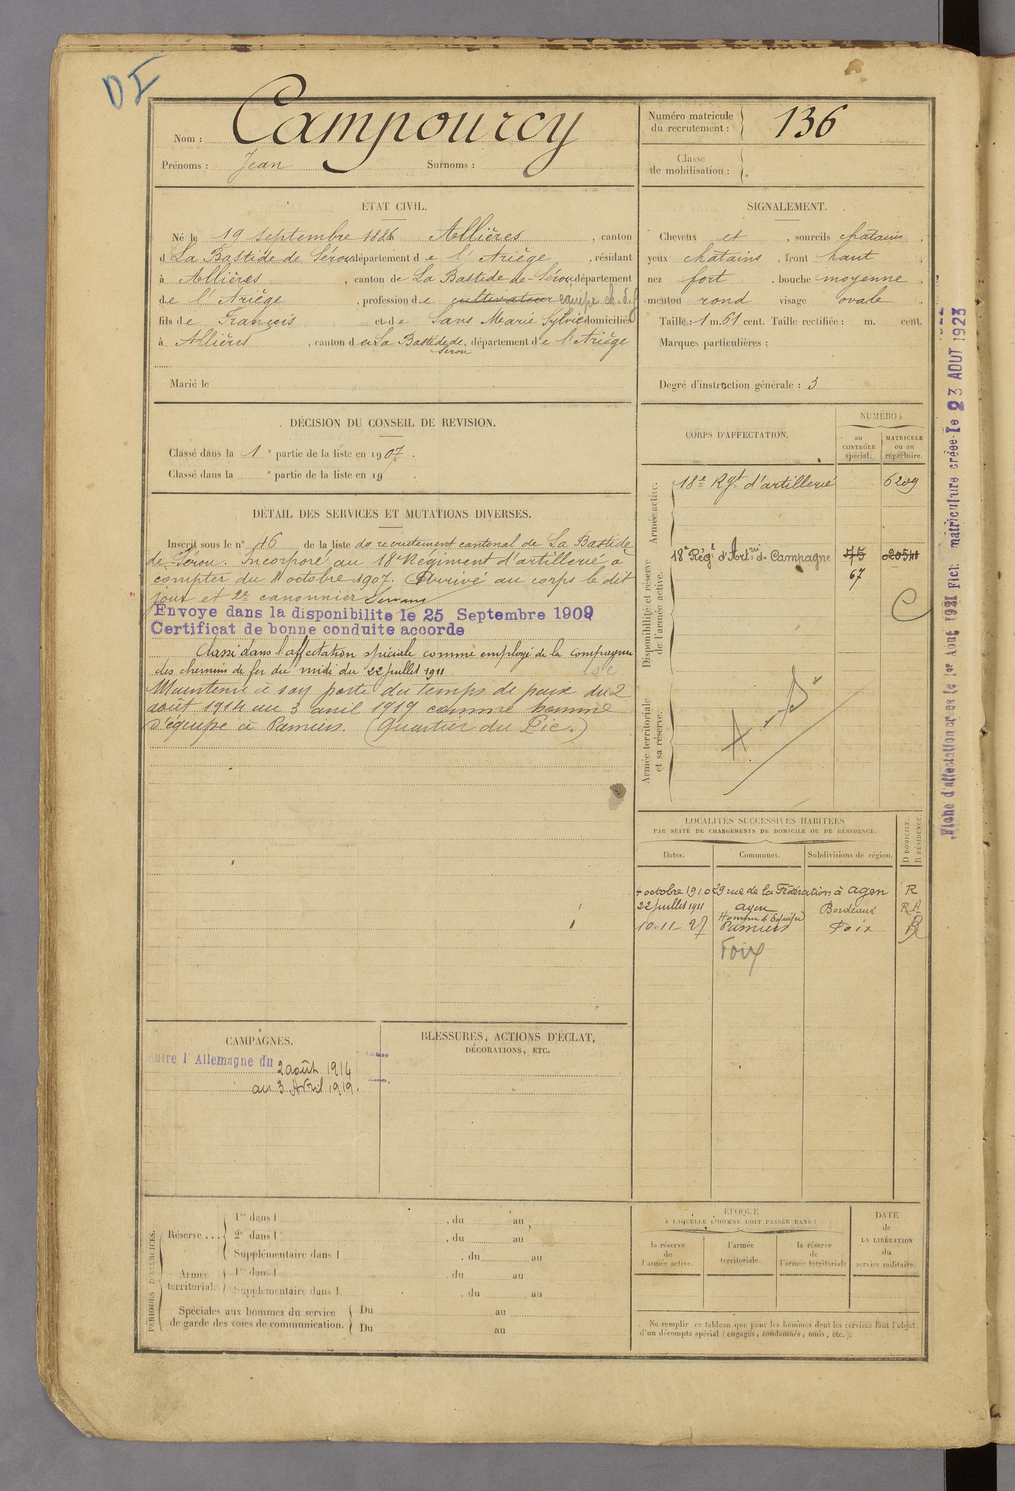 DI
Nom : Campourcy
Prénoms : Jean Surnoms :
Numéro matricule du recrutement : 136
Classe de mobilisation :
ÉTAT CIVIL.
Né le 19 septembre 1886 Allières, canton
d La Bastide de Sérou département de l'Ariège, résidant
à Allières, canton de La Bastide-de-Sérou département
de l'Ariège, profession de cultivateur
fils de François et de Sans Marie Sylvie domiciliés
à Allières, canton de La Bastide de Sérou, département de l'Ariège
Marié le
SIGNALEMENT.
Cheveux et, sourcils chatains,
yeux chatains, front haut
nez fort, bouche moyenne
menton rond visage ovale
Taille : 1 m. 61 cent. Taille rectifiée : m. cent.
Marques particulières :
Degré d'instruction générale : 3
DÉCISION DU CONSEIL DE REVISION.
Classé dans la 1e partie de la liste en 1907.
Classé dans la e partie de la liste en 19 .
DÉTAIL DES SERVICES ET MUTATIONS DIVERSES.
Inscrit sous le n° 16 de la liste de recrutement cantonal de La Bastide
de Sérou. Incorporé au 18e Régiment d'artillerie à
compter du 8 octobre 1907. Arrivé au corps le dit
jour et 2e canonnier servant
Envoye dans la disponibilite le 25 Septembre 1909
Certificat de bonne conduite accorde
Classé dans l'affectation spéciale comme employé de la compagnie
des chemins de fer du midi du 22 juillet 1911
Maintenu à son poste du temps de paix du 2
août 1914 au 3 avril 1919 comme homme
d'équipe à Pamiers. (Quartier du Pic.)
CORPS D'AFFECTATION.
NUMÉRO :
au CONTRÔLE spécial.
MATRICULE ou au répertoire.
Armée active.
18e Rgt d'artillerie 6209
Disponibilité et réserve de l'armée active.
18e Régt d'Artrie de Campagne 715
67
C
Armée territoriale et sa réserve.
LOCALITÉS SUCCESSIVES HABITÉES
PAR SUITE DE CHANGEMENTS DE DOMICILE OU DE RÉSIDENCE.
D DOMICILE. R RÉSIDENCE.
Dates. Communes. Subdivisions de région.
4 octobre 1910 29 rue de la Fédération à Agen R
22 juillet 1911 Agen Bordeaux R
Homme d'équipe
10-11-27 Pamiers Foix R
Foix
CAMPAGNES.
ntre l'Allemagne du 2 août 1914
au 3 Avril 1919.
BLESSURES, ACTIONS D'ÉCLAT,
DÉCORATIONS, ETC.
PÉRIODES D'EXERCICES.
Réserve ...
1re dans l , du au ,
2e dans l , du au
Supplémentaire dans l , du au
Armée territoriale
1re dans l , du au
Supplémentaire dans l , du au
Spéciales aux hommes du service de garde des voies de communication.
Du au
Du au
ÉPOQUE
A LAQUELLE L'HOMME DOIT PASSER DANS :
la réserve de l'armée active.
l'armée territoriale.
la réserve de l'armée territoriale
DATE de LA LIBÉRATION du service militaire.
Ne remplir ce tableau que pour les hommes dont les services font l'objet
d'un décompte spécial (engagés, condamnés, omis, etc.).
Fiche d'affectation créée le 1er Août 1921 Fict. matriculaire créée le 23 AOUT 1923